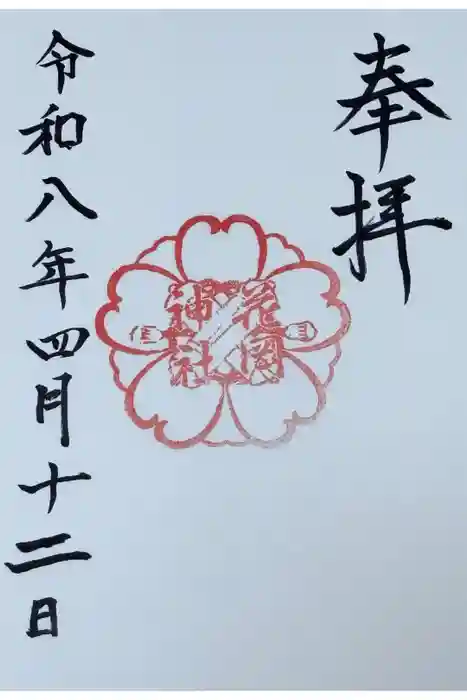 奉拝
花園
神社
令和八年四月十二日